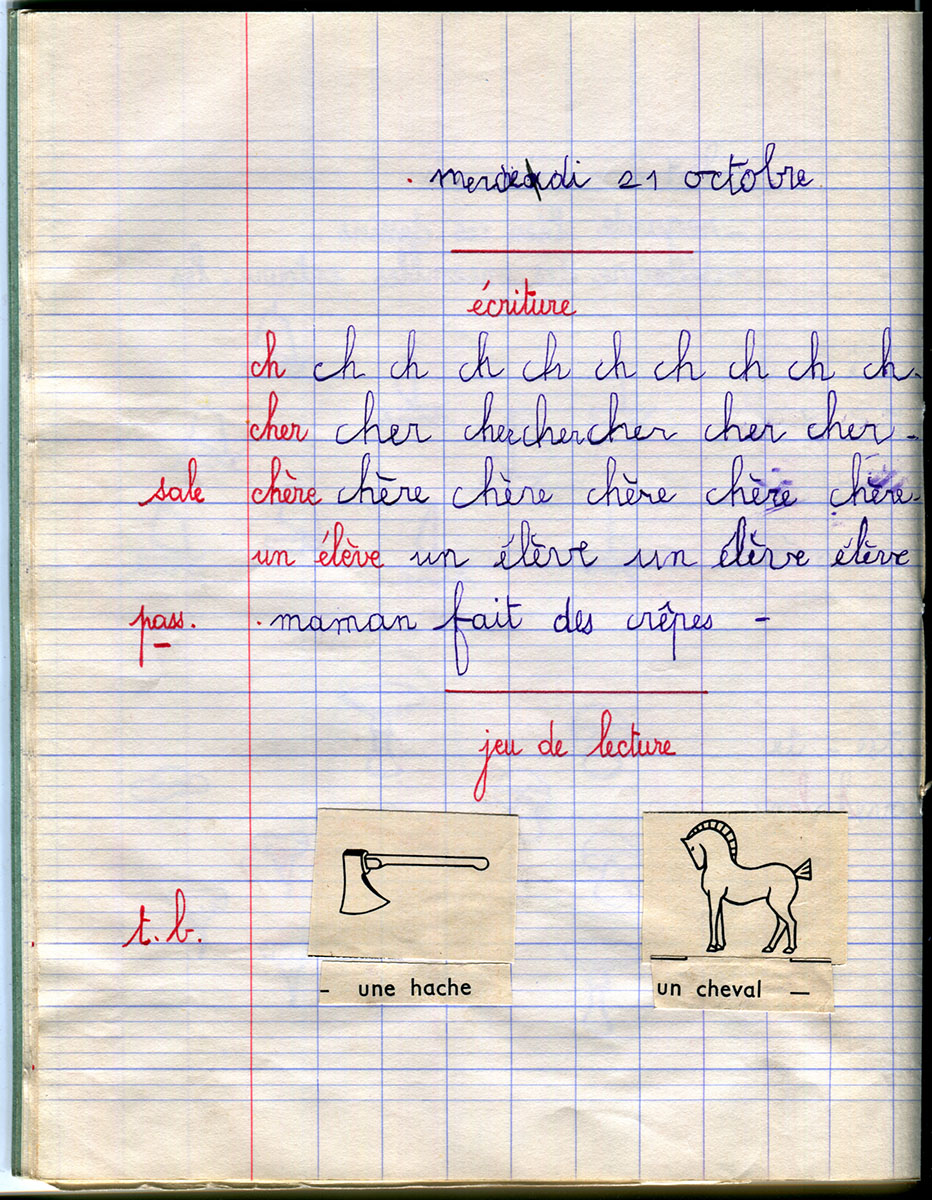 . mercredi 21 octobre
écriture
ch ch ch ch ch ch ch ch ch ch.
cher cher cher cher cher cher cher -
sale chère chère chère chère chère chère.
un élève un élève un élève élève
pass. . maman fait des crêpes -
jeu de lecture
t.b.
- une hache un cheval —